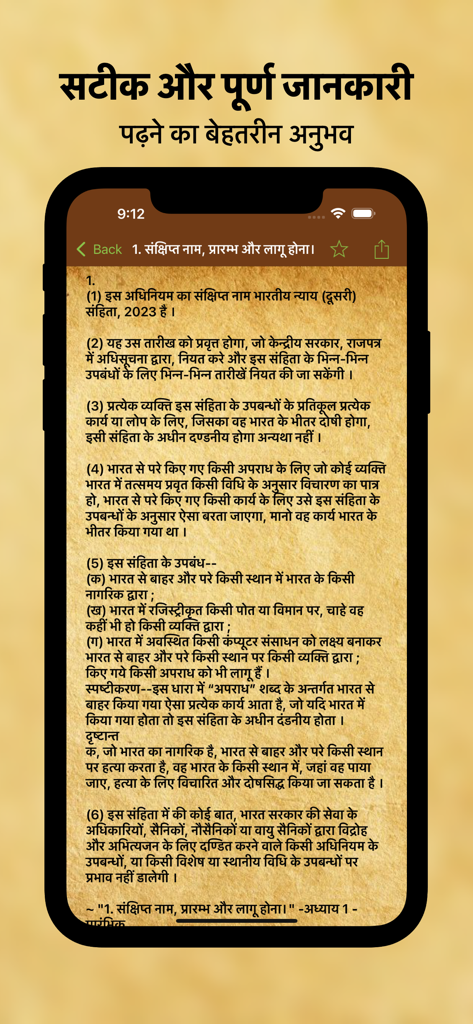 सटीक और पूर्ण जानकारी
पढ़ने का बेहतरीन अनुभव
9:12
Back 1. संक्षिप्त नाम, प्रारम्भ और लागू होना।
1.
(1) इस अधिनियम का संक्षिप्त नाम भारतीय न्याय (दूसरी)
संहिता, 2023 है ।
(2) यह उस तारीख को प्रवृत्त होगा, जो केन्द्रीय सरकार, राजपत्र
में अधिसूचना द्वारा, नियत करे और इस संहिता के भिन्न-भिन्न
उपबंधों के लिए भिन्न-भिन्न तारीखें नियत की जा सकेंगी ।
(3) प्रत्येक व्यक्ति इस संहिता के उपबन्धों के प्रतिकूल प्रत्येक
कार्य या लोप के लिए, जिसका वह भारत के भीतर दोषी होगा,
इसी संहिता के अधीन दण्डनीय होगा अन्यथा नहीं ।
(4) भारत से परे किए गए किसी अपराध के लिए जो कोई व्यक्ति
भारत में तत्समय प्रवृत किसी विधि के अनुसार विचारण का पात्र
हो, भारत से परे किए गए किसी कार्य के लिए उसे इस संहिता के
उपबन्धों के अनुसार ऐसा बरता जाएगा, मानो वह कार्य भारत के
भीतर किया गया था ।
(5) इस संहिता के उपबंध--
(क) भारत से बाहर और परे किसी स्थान में भारत के किसी
नागरिक द्वारा ;
(ख) भारत में रजिस्ट्रीकृत किसी पोत या विमान पर, चाहे वह
कहीं भी हो किसी व्यक्ति द्वारा ;
(ग) भारत में अवस्थित किसी कंप्यूटर संसाधन को लक्ष्य बनाकर
भारत से बाहर और परे किसी स्थान पर किसी व्यक्ति द्वारा ;
किए गये किसी अपराध को भी लागू हैं ।
स्पष्टीकरण--इस धारा में “अपराध” शब्द के अन्तर्गत भारत से
बाहर किया गया ऐसा प्रत्येक कार्य आता है, जो यदि भारत में
किया गया होता तो इस संहिता के अधीन दंडनीय होता ।
दृष्टान्त
क, जो भारत का नागरिक है, भारत से बाहर और परे किसी स्थान
पर हत्या करता है, वह भारत के किसी स्थान में, जहां वह पाया
जाए, हत्या के लिए विचारित और दोषसिद्ध किया जा सकता है ।
(6) इस संहिता में की कोई बात, भारत सरकार की सेवा के
अधिकारियों, सैनिकों, नौसैनिकों या वायु सैनिकों द्वारा विद्रोह
और अभित्यजन के लिए दण्डित करने वाले किसी अधिनियम के
उपबन्धों, या किसी विशेष या स्थानीय विधि के उपबन्धों पर
प्रभाव नहीं डालेगी ।
~ "1. संक्षिप्त नाम, प्रारम्भ और लागू होना।" -अध्याय 1 -
प्रारंभिक